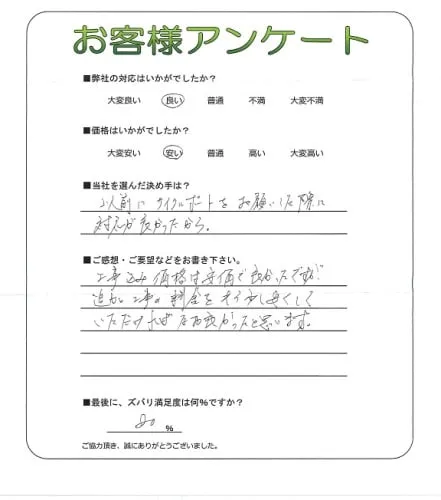 お客様アンケート
■弊社の対応はいかがでしたか？
大変良い 良い 普通 不満 大変不満
■価格はいかがでしたか？
大変安い 安い 普通 高い 大変高い
■当社を選んだ決め手は？
以前にサイクルポートをお願いした際に
対応が良かったから。
■ご感想・ご要望などをお書き下さい。
工事込み価格は安価で良かったですが
追加工事の料金をもう少し安くして
いただければ尚良かったと思います。
■最後に、ズバリ満足度は何%ですか？
80 %
ご協力頂き、誠にありがとうございました。